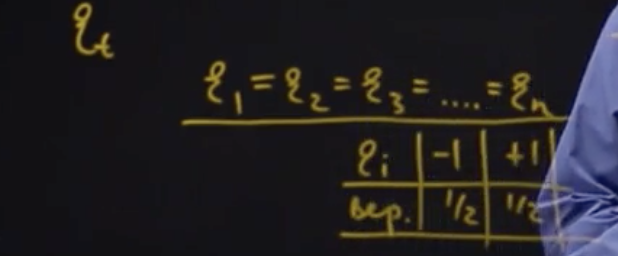 ξt
ξ1 = ξ2 = ξ3 = .... = ξn
ξi | -1 | +1 |
вер. | 1/2 | 1/2